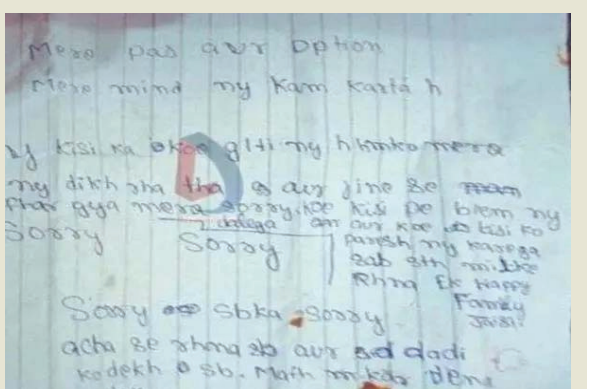 Mere pas aur option
Mere mind ny kam karta h
kisi ka koe glti ny h hmko mera
ny dikh rha tha aur jine se
bhar gya mera sorry. koe kisi pe blem ny
dalega aur koe kisi ko
Sorry Sorry paresh ny karega
sab sth milke
Rhna Ek Happy
Family
Jaisi.
Sorry sbka sorry
acha se rhna sb aur dadi
ko dekh sb. Math